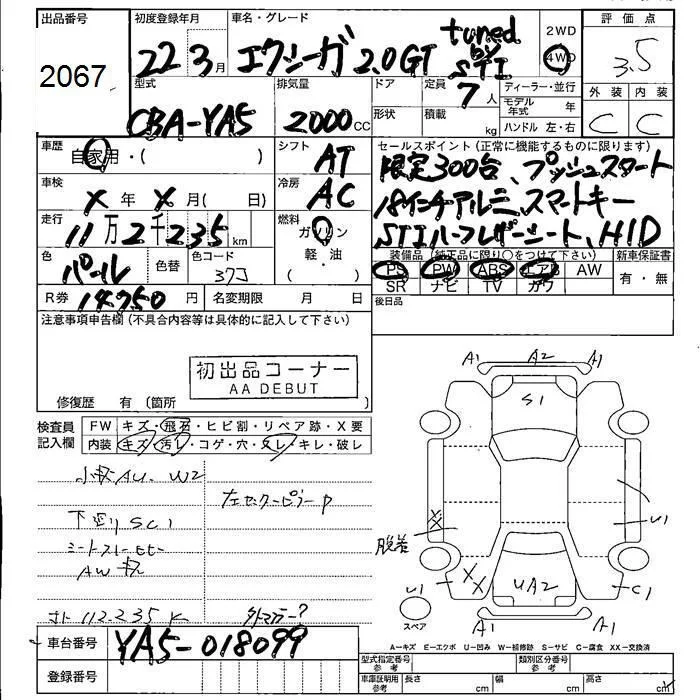 出品番号
2067
初度登録年月
22 3月
車名・グレード
エクシーガ 2.0GT tuned by STI
2WD
4WD
評価点
3.5
外装 内装
C C
型式
CBA-YA5
排気量
2000cc
ドア
形状
定員
7人
積載
kg
ディーラー・並行
モデル年式 年
ハンドル 左・右
車歴
自家用・( )
シフト
AT
車検
X年 X月( 日)
冷房
AC
走行
11万2千235km
燃料
ガソリン
軽・油
( )
色
パール
色替
色コード
37J
R券 14,750円
名変期限 月 日
セールスポイント(正常に機能するものに限ります)
限定300台、プッシュスタート
18インチアルミ、スマートキー
STIハーフレザーシート、HID
装備品(純正品に限り○をつけて下さい)
PS PW ABS エアB AW
SR ナビ TV カワ
新車保証書
有・無
後日品
注意事項申告欄(不具合内容等は具体的に記入して下さい)
初出品コーナー
AA DEBUT
修復歴 有(箇所
検査員記入欄
FW キズ・飛石・ヒビ割・リペア跡・X要
内装 キズ・汚レ・コゲ・穴・スレ・キレ・破レ
小キズAU. W2
下廻りSC1
左センターピラーP
シートスレ
AWキズ
112.235K
車台番号 YA5-018099
登録番号
A1 A2 A1
S1
XX
脱着
U1
XX
U1
UA2
C1
A1 A1
スペア
A=キズ E=エクボ U=凹み W=補修跡 S=サビ C=腐食 XX=交換済
型式指定番号 参考
類別区分番号 参考
車庫証明用 参考
長さ cm
幅 cm
高さ cm